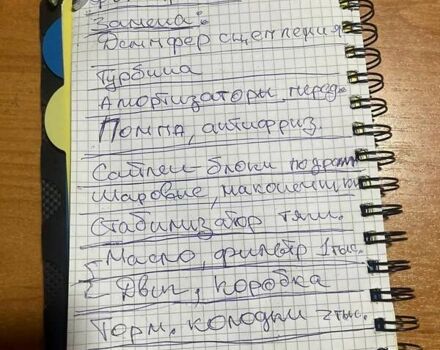 Замена:
Демпфер сцепления
Турбина
Амортизаторы, перед.
Помпа, антифриз.
Сайлен-блоки подрам
Шаровые, наконечники
Стабилизатор тяги.
Масло, фильтр 1 тыс.
Двиг, коробка
Торм. колодки 2 тыс.